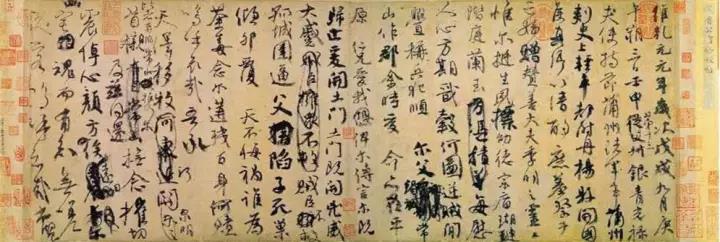 維乾元元年歲次戊戌九月庚
午朔三日壬申第十三叔銀青光祿
夫使持節蒲州諸軍事蒲州
刺史上輕車都尉丹楊縣開國
侯真卿以清酌庶羞祭于
亡姪贈贊善大夫季明之靈
惟爾挺生夙標幼德宗廟瑚璉
階庭蘭玉每慰
人心方期戩穀何圖逆賊閒
釁稱兵犯順爾父竭誠常
山作郡余時受命亦在平
原仁兄愛我俾爾傳言爾既
歸止爰開土門土門既開兇威
大蹙賊臣不救
孤城圍逼父陷子死巢
傾卵覆天不悔禍誰為
荼毒念爾遘殘百身何贖
嗚呼哀哉吾承
天澤移牧河關泉明
比者再陷常山攜爾
首櫬及茲同還撫念摧切
震悼心顏方俟遠日
爾幽宅魂而有知無嗟
久客嗚呼哀哉尚饗